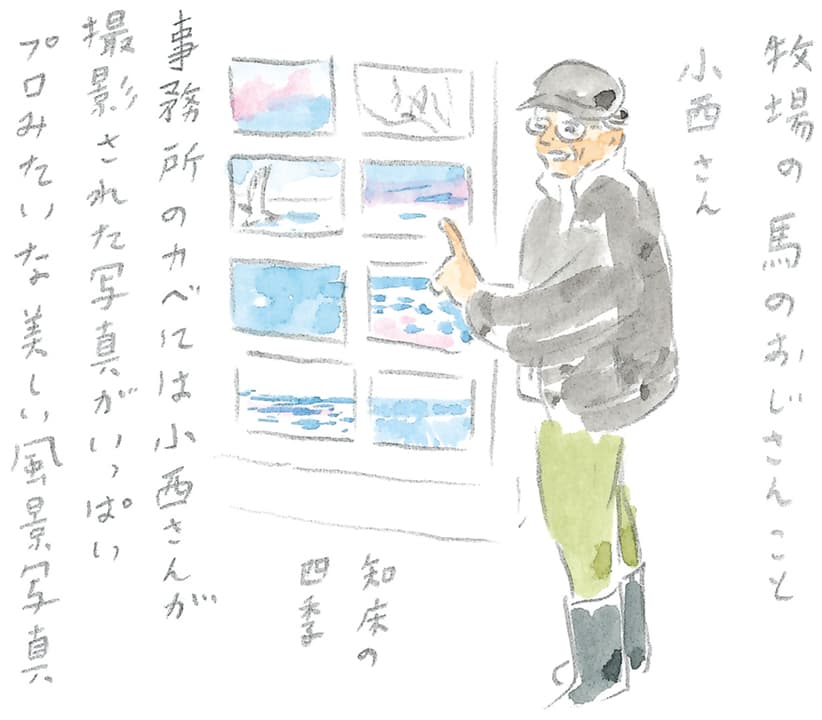 牧場の馬のおじさんこと
小西さん
知床の
四季
事務所のカベには小西さんが
撮影された写真がいっぱい
プロみたいな美しい風景写真